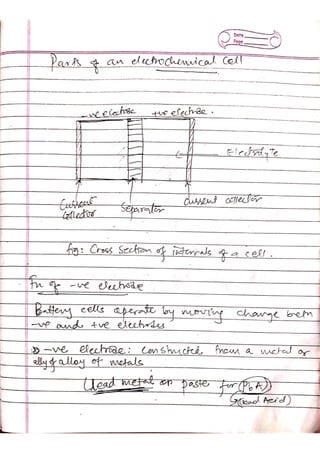 Date
Page
Parts of an electrochemical cell
-ve electrode +ve electrode.
Electrolyte
Current Collector Separator Current collector
fig: Cross Section of internals of a cell.
Fn of -ve electrode
Battery cells operate by moving charge betn
-ve and +ve electrodes
-ve electrode: constructed from a metal or
alloy of metals
Lead metal or paste for (PbA)
(Lead Acid)